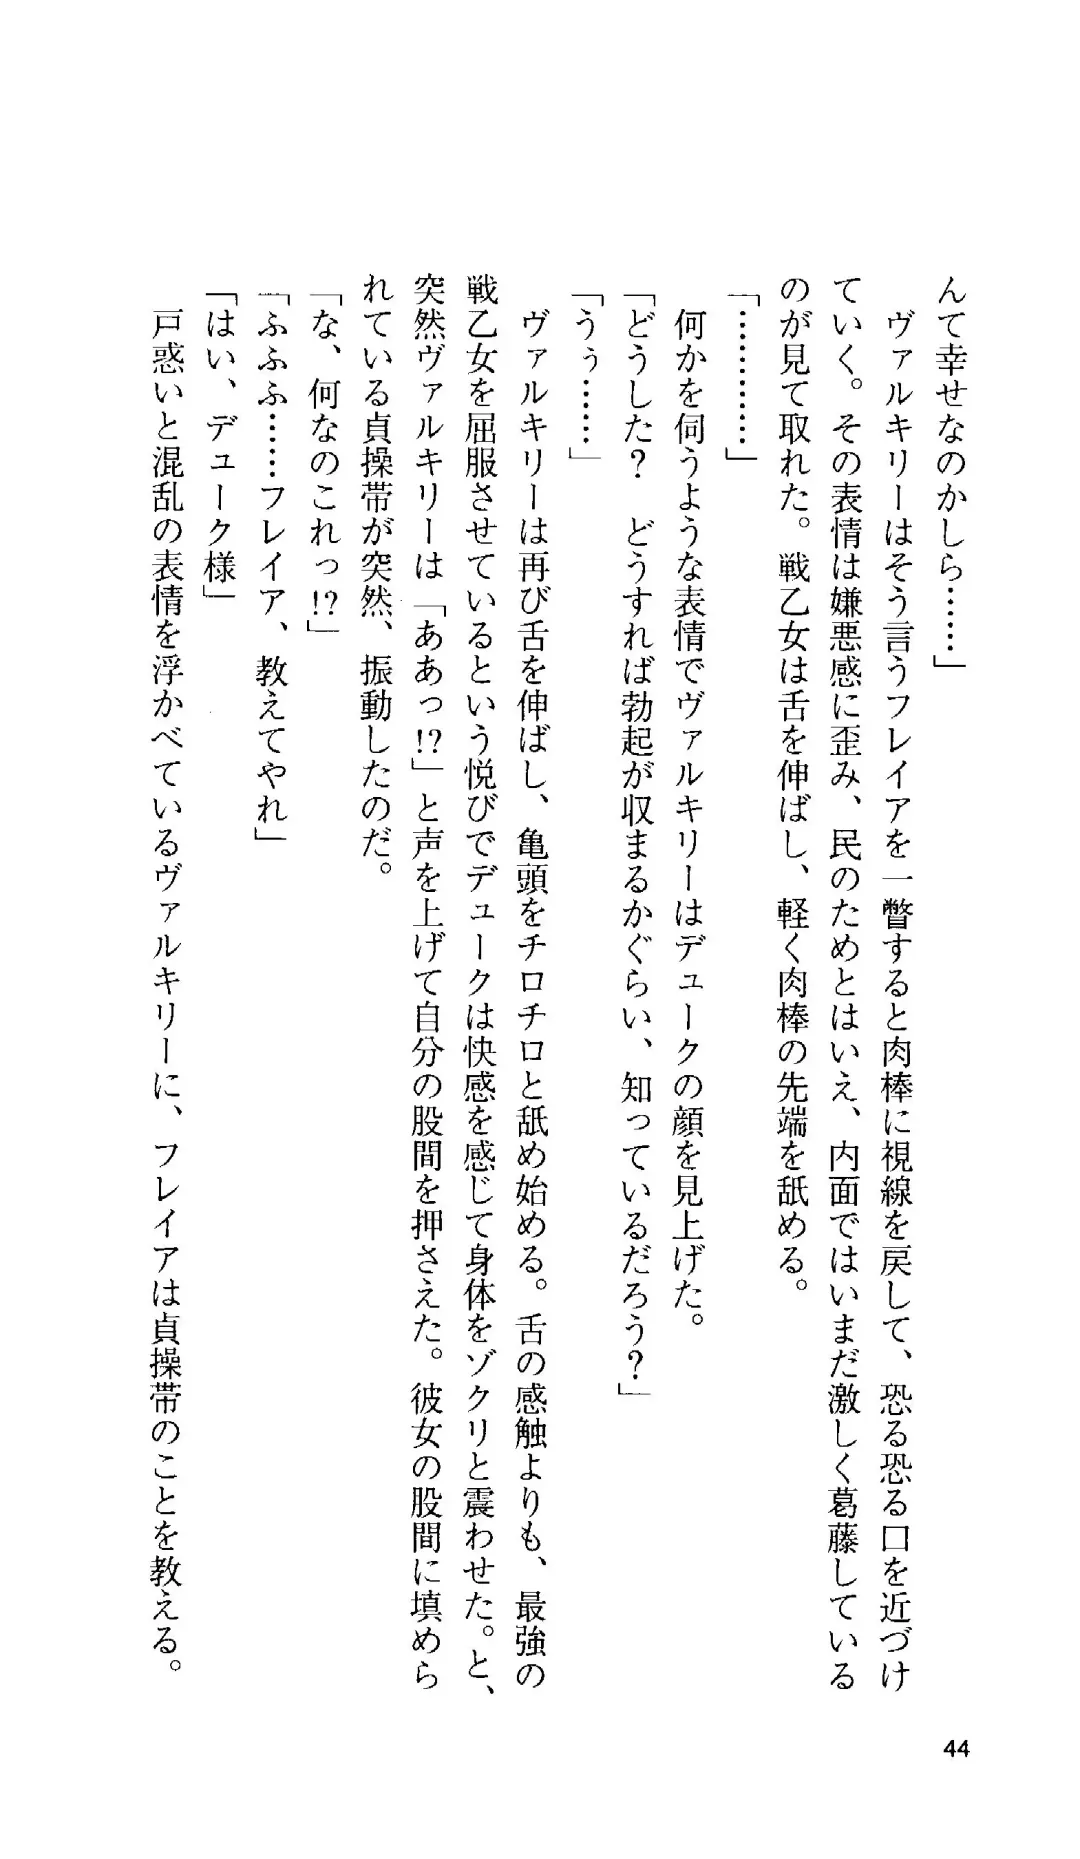 んて幸せなのかしら……」
　ヴァルキリーはそう言うフレイアを一瞥すると肉棒に視線を戻して、恐る恐る口を近づけ
ていく。その表情は嫌悪感に歪み、民のためとはいえ、内面ではいまだ激しく葛藤している
のが見て取れた。戦乙女は舌を伸ばし、軽く肉棒の先端を舐める。
「…………」
　何かを伺うような表情でヴァルキリーはデュークの顔を見上げた。
「どうした？　どうすれば勃起が収まるかぐらい、知っているだろう？」
「うぅ……」
　ヴァルキリーは再び舌を伸ばし、亀頭をチロチロと舐め始める。舌の感触よりも、最強の
戦乙女を屈服させているという悦びでデュークは快感を感じて身体をゾクリと震わせた。と、
突然ヴァルキリーは「ああっ!?」と声を上げて自分の股間を押さえた。彼女の股間に填めら
れている貞操帯が突然、振動したのだ。
「な、何なのこれっ!?」
「ふふふ……フレイア、教えてやれ」
「はい、デューク様」
　戸惑いと混乱の表情を浮かべているヴァルキリーに、フレイアは貞操帯のことを教える。
44